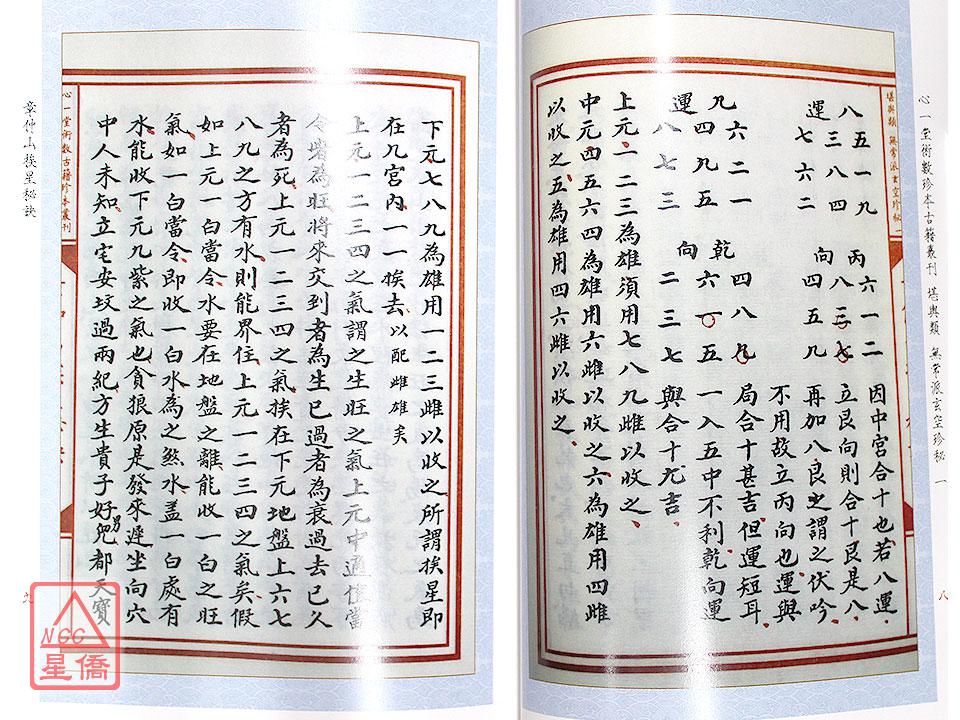 心一堂術數珍本古籍叢刊 堪輿類 無常派玄空珍秘 一
八
堪輿類 無常派玄空珍秘
八 五 一 九 丙 六 一 二 因中宮合十也若八運
運 三 八 四 八 三 七 立艮向則合十艮是八
七 六 二 向 四 五 九 再加八艮之謂之伏吟
不用故立丙向也運與
九 六 二 一 乾 四 八 九 局合十甚吉但運短耳
四 九 五 六 一 五 一入五中不利乾向運
運 八 七 三 向 二 三 七 與合十九吉
上元一二三為雄須用七八九雌以收之
中元四五六四為雄用六雌以收之六為雄用四雌
以收之五為雄用四六雌以收之
下元七八九為雄用一二三雌以收之所謂挨星即
在九宮內一一挨去以配雌雄矣
上元一二三四之氣謂之生旺之氣上元中通惟當
令者為旺將來交到者為生已過者為衰過去已久
者為死上元一二三四之氣挨在下元地盤上六七
八九之方有水則能界住上元一二三四之氣矣假
如上元一白當令水要在地盤之離能收一白之旺
氣如一白當令即收一白水為之煞水盖一白處有
水能收下元九紫之氣也貪狼原是發來遲坐向穴
中人未知立宅安坟過兩紀方生貴子好男兒都天寶
心一堂術數古籍珍本叢刊
章仲山挨星秘訣
九
NCC
星僑